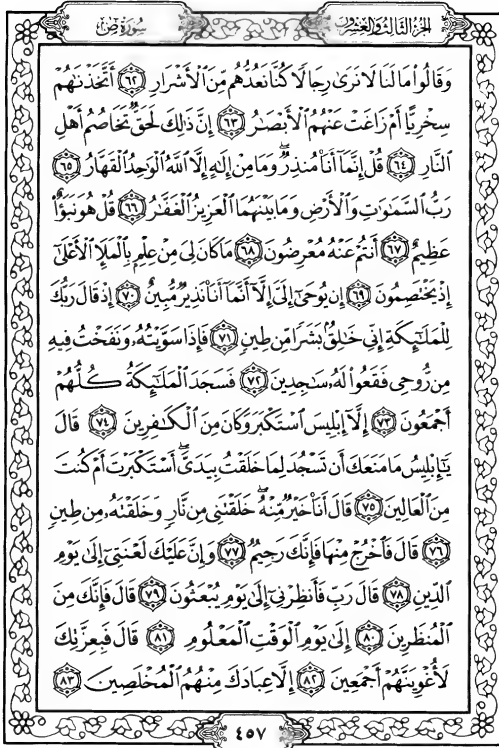 سُورَةُ صٓ
الجُزءُ الثَّالِثُ وَالعِشْرُونَ
وَقَالُوا۟ مَا لَنَا لَا نَرَىٰ رِجَالًا كُنَّا نَعُدُّهُم مِّنَ ٱلْأَشْرَارِ ٦٢ أَتَّخَذْنَٰهُمْ
سِخْرِيًّا أَمْ زَاغَتْ عَنْهُمُ ٱلْأَبْصَٰرُ ٦٣ إِنَّ ذَٰلِكَ لَحَقٌّ تَخَاصُمُ أَهْلِ
ٱلنَّارِ ٦٤ قُلْ إِنَّمَآ أَنَا۠ مُنذِرٌ ۖ وَمَا مِنْ إِلَٰهٍ إِلَّا ٱللَّهُ ٱلْوَٰحِدُ ٱلْقَهَّارُ ٦٥
رَبُّ ٱلسَّمَٰوَٰتِ وَٱلْأَرْضِ وَمَا بَيْنَهُمَا ٱلْعَزِيزُ ٱلْغَفَّٰرُ ٦٦ قُلْ هُوَ نَبَؤٌا۟
عَظِيمٌ ٦٧ أَنتُمْ عَنْهُ مُعْرِضُونَ ٦٨ مَا كَانَ لِىَ مِنْ عِلْمٍۭ بِٱلْمَلَإِ ٱلْأَعْلَىٰٓ
إِذْ يَخْتَصِمُونَ ٦٩ إِن يُوحَىٰٓ إِلَىَّ إِلَّآ أَنَّمَآ أَنَا۠ نَذِيرٌ مُّبِينٌ ٧٠ إِذْ قَالَ رَبُّكَ
لِلْمَلَٰٓئِكَةِ إِنِّى خَٰلِقٌۢ بَشَرًا مِّن طِينٍ ٧١ فَإِذَا سَوَّيْتُهُۥ وَنَفَخْتُ فِيهِ
مِن رُّوحِى فَقَعُوا۟ لَهُۥ سَٰجِدِينَ ٧٢ فَسَجَدَ ٱلْمَلَٰٓئِكَةُ كُلُّهُمْ
أَجْمَعُونَ ٧٣ إِلَّآ إِبْلِيسَ ٱسْتَكْبَرَ وَكَانَ مِنَ ٱلْكَٰفِرِينَ ٧٤ قَالَ
يَٰٓإِبْلِيسُ مَا مَنَعَكَ أَن تَسْجُدَ لِمَا خَلَقْتُ بِيَدَىَّ ۖ أَسْتَكْبَرْتَ أَمْ كُنتَ
مِنَ ٱلْعَالِينَ ٧٥ قَالَ أَنَا۠ خَيْرٌ مِّنْهُ ۖ خَلَقْتَنِى مِن نَّارٍ وَخَلَقْتَهُۥ مِن طِينٍ
٧٦ قَالَ فَٱخْرُجْ مِنْهَا فَإِنَّكَ رَجِيمٌ ٧٧ وَإِنَّ عَلَيْكَ لَعْنَتِىٓ إِلَىٰ يَوْمِ
ٱلدِّينِ ٧٨ قَالَ رَبِّ فَأَنظِرْنِىٓ إِلَىٰ يَوْمِ يُبْعَثُونَ ٧٩ قَالَ فَإِنَّكَ مِنَ
ٱلْمُنظَرِينَ ٨٠ إِلَىٰ يَوْمِ ٱلْوَقْتِ ٱلْمَعْلُومِ ٨١ قَالَ فَبِعِزَّتِكَ
لَأُغْوِيَنَّهُمْ أَجْمَعِينَ ٨٢ إِلَّا عِبَادَكَ مِنْهُمُ ٱلْمُخْلَصِينَ ٨٣
٤٥٧